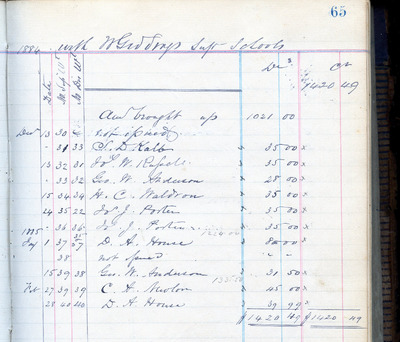 65
1884 with Supt Schools
Dr Cr
1420 49
Date
Amt brought up 1021 00
Decr 13 30 not opened
" 31 33 S. D. Kalb " 35 00 "
13 32 31 Jos. W. " 35 00 "
" 33 32 Geo. W. Anderson " 28 00 "
15 34 34 H. C. Waldron " 35 00 "
24 35 22 Jos J. Porter " 35 00 "
" 36 36 Jos J. Porter " 35 00 "
1885
Jay 1 37 37 D. A. House " 80 00 "
38 not opened " "
15 39 38 Geo. W. Anderson " 31 50 "
Feb 27 39 39 C. A. " 45 00 "
28 40 40 D. A House " 39 99 "
$1420 49 $1420 49